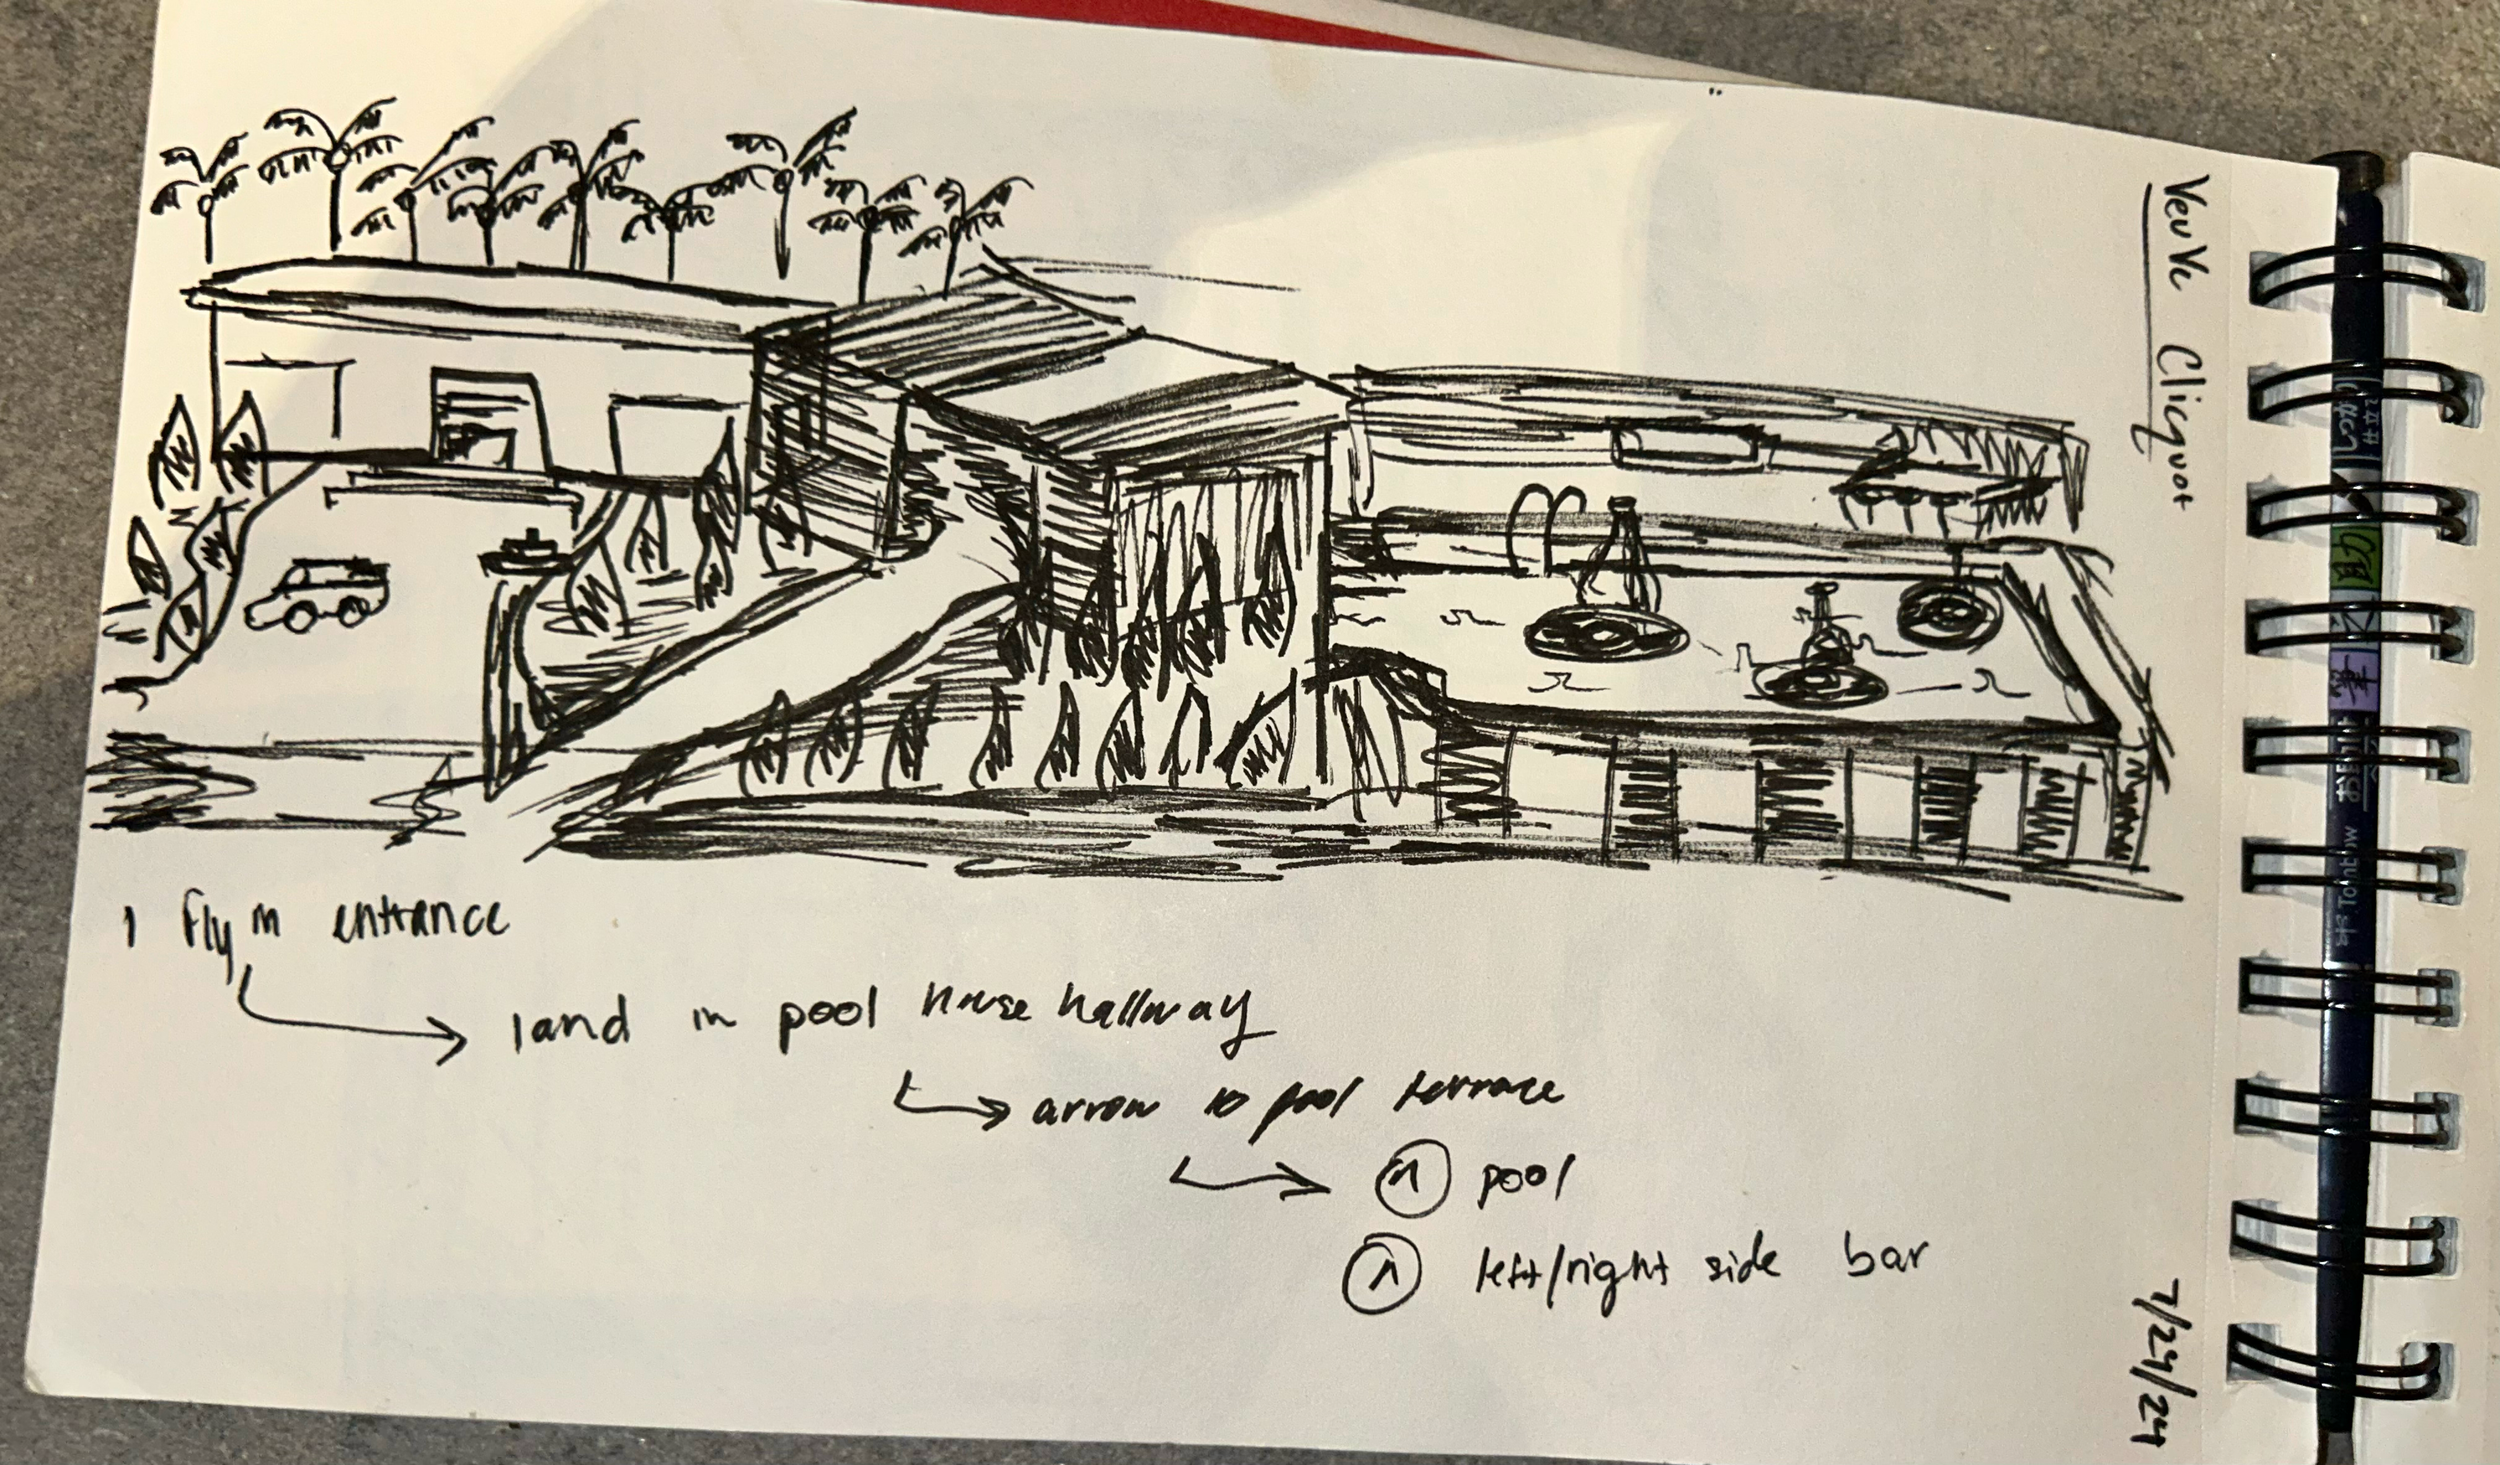 Veuve Clicquot
1 Fly in entrance
land in pool house hallway
arrow to pool terrace
pool
left/right side bar
7/29/24
Tombow